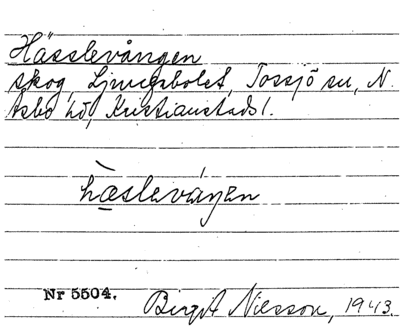 Hässlevången
skog, Ljungsbolet, Tossjö sn, N.
Åsbo hd, Kristianstads l.
hæsleváŋen
Nr 5504.
Birgit Nilsson, 1943.